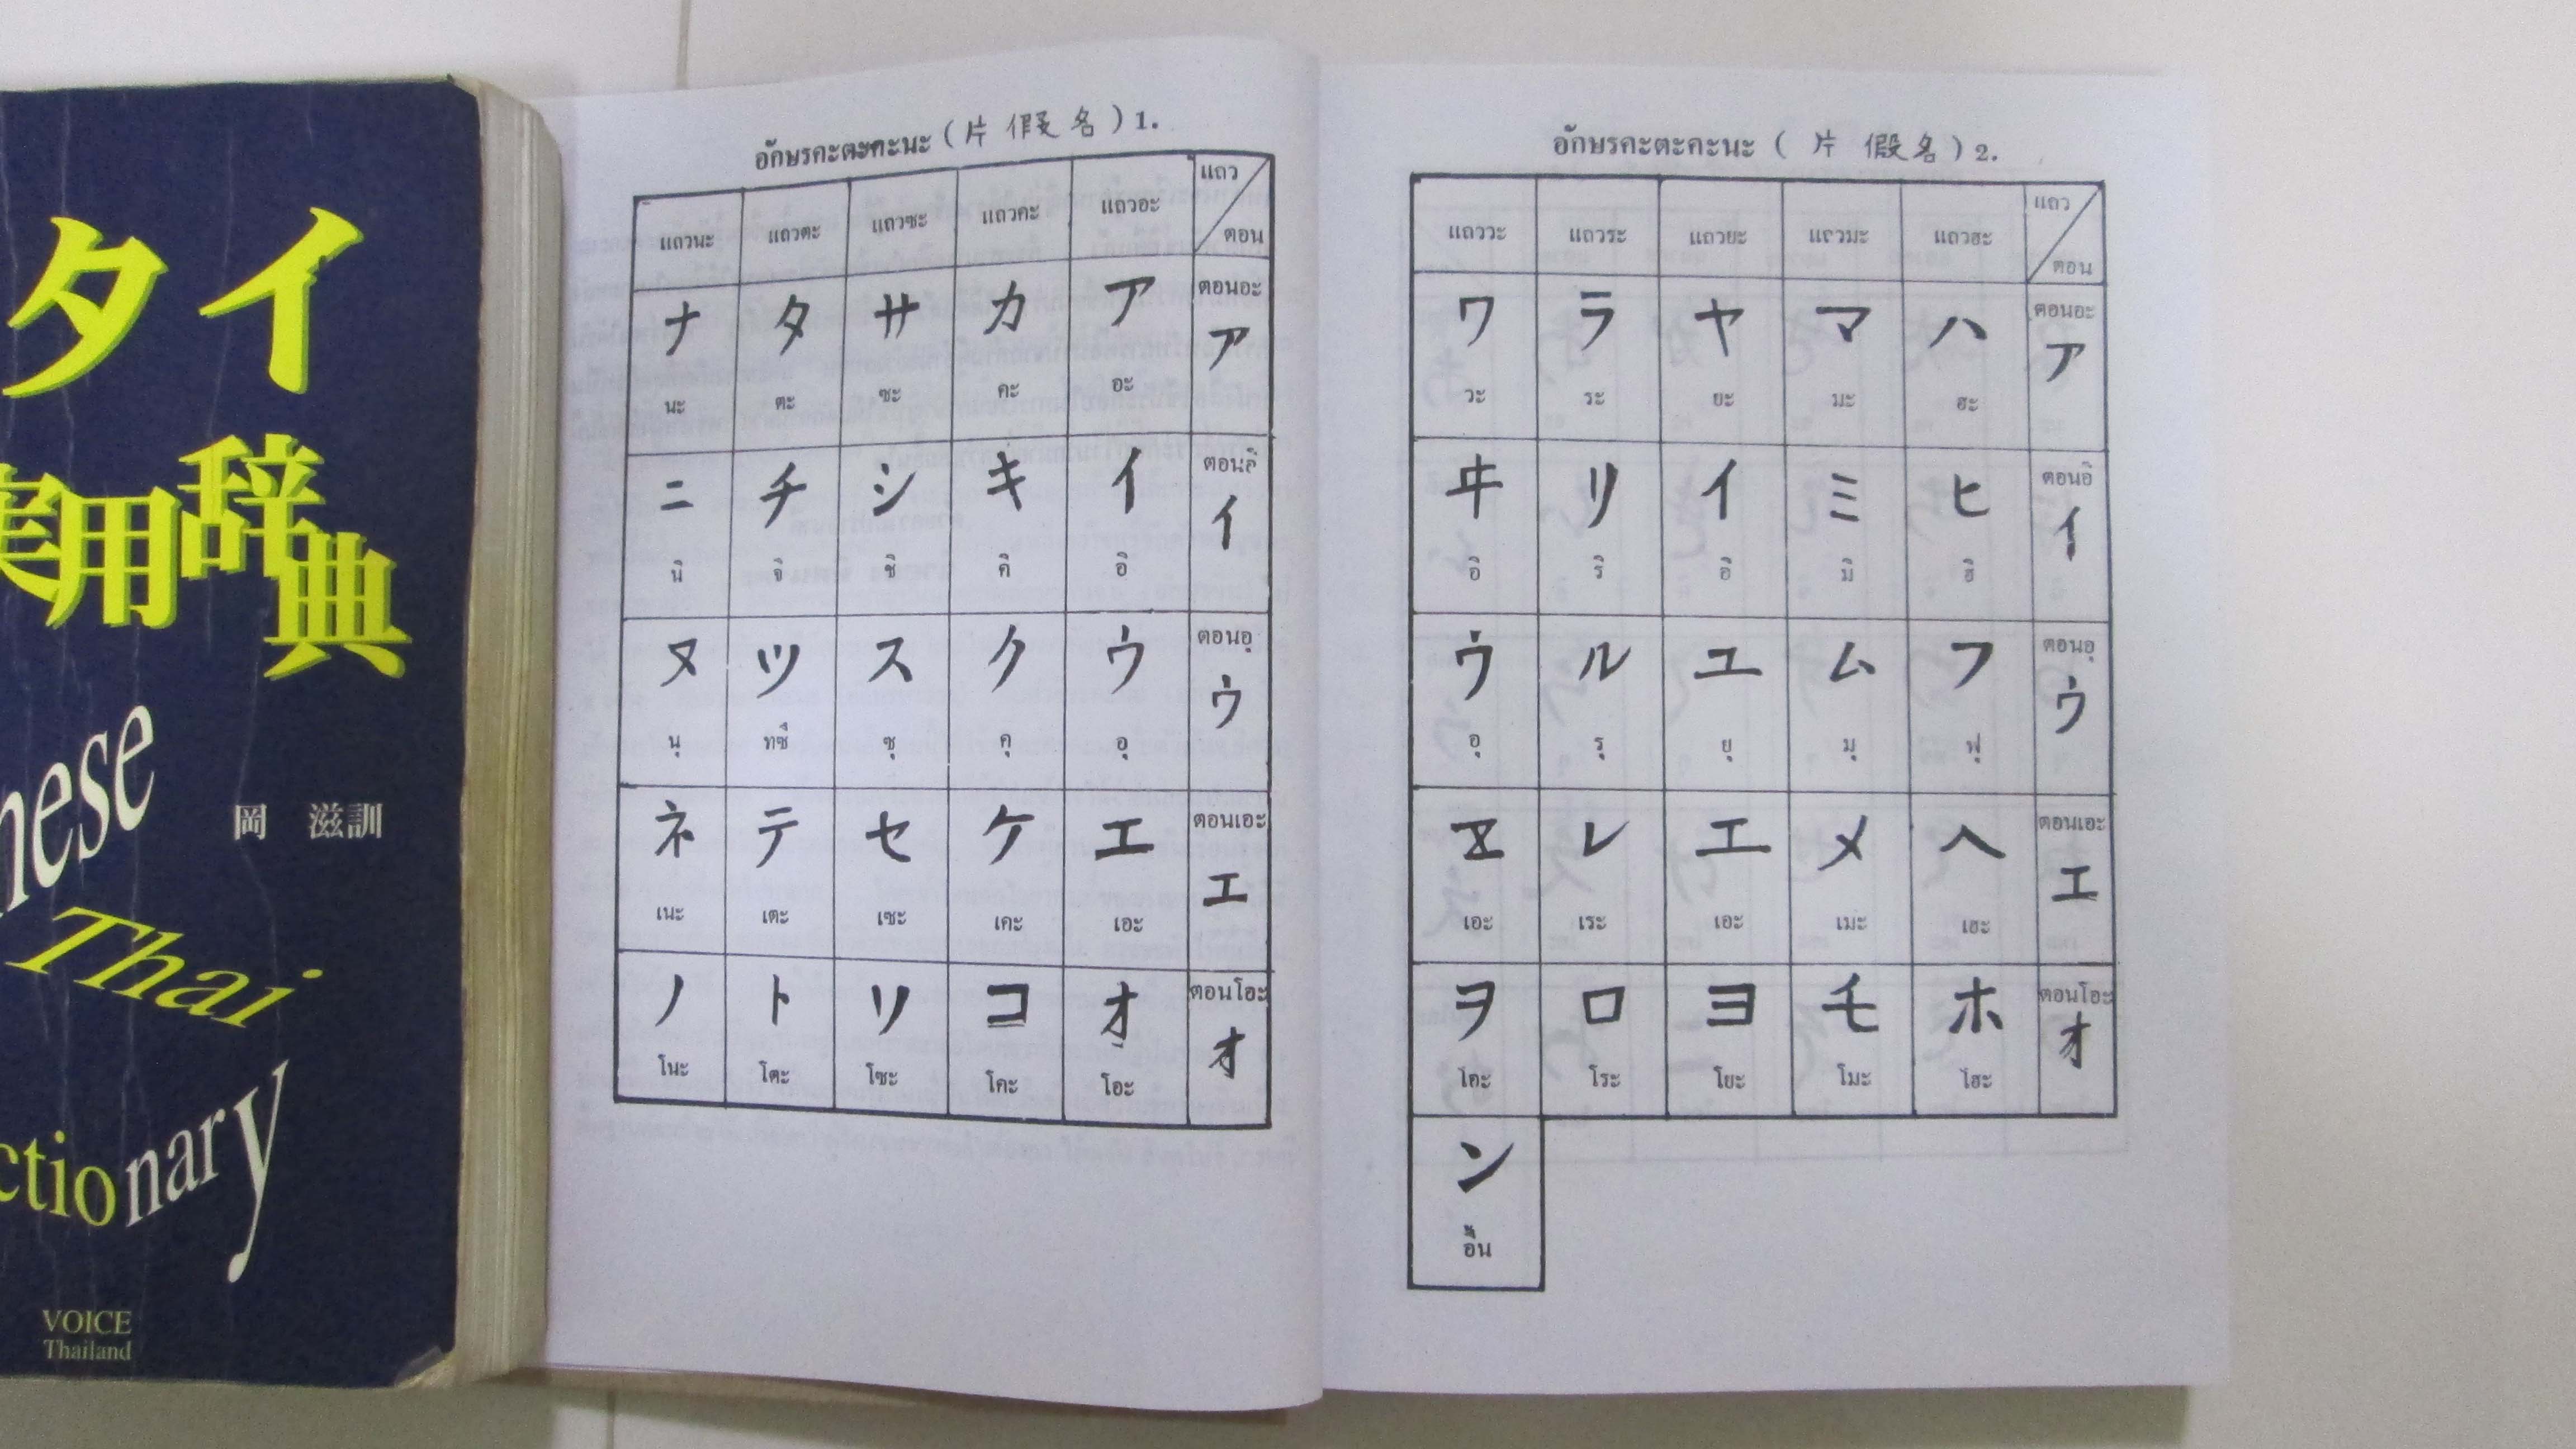 タイ
実用辞典
nese
岡 滋訓
Thai
ctionary
VOICE
Thailand
อักษรคะตะคะนะ (片 假 名) 1.
แถวนะ แถวตะ แถวซะ แถวคะ แถวอะ แถว ตอน
ナ タ サ カ ア ตอนอะ ア
นะ ตะ ซะ คะ อะ
ニ チ シ キ イ ตอนอิ イ
นิ จิ ชิ คิ อิ
ヌ ツ ス ク ウ ตอนอุ ウ
นุ ทซึ ซุ คุ อุ
ネ テ セ ケ エ ตอนเอะ エ
เนะ เตะ เซะ เคะ เอะ
ノ ト ソ コ オ ตอนโอะ オ
โนะ โตะ โซะ โคะ โอะ
อักษรคะตะคะนะ ( 片 假 名 ) 2.
แถววะ แถวระ แถวยะ แถวมะ แถวฮะ แถว ตอน
ワ ラ ヤ マ ハ ตอนอะ ア
วะ ระ ยะ มะ ฮะ
ヰ リ イ ミ ヒ ตอนอิ イ
อิ ริ อิ มิ ฮิ
ウ ル ユ ム フ ตอนอุ ウ
อุ รุ ยุ มุ ฟุ
ヱ レ エ メ ヘ ตอนเอะ エ
เอะ เระ เอะ เมะ เฮะ
ヲ ロ ヨ モ ホ ตอนโอะ オ
โคะ โระ โยะ โมะ โฮะ
ン
อึ๊น